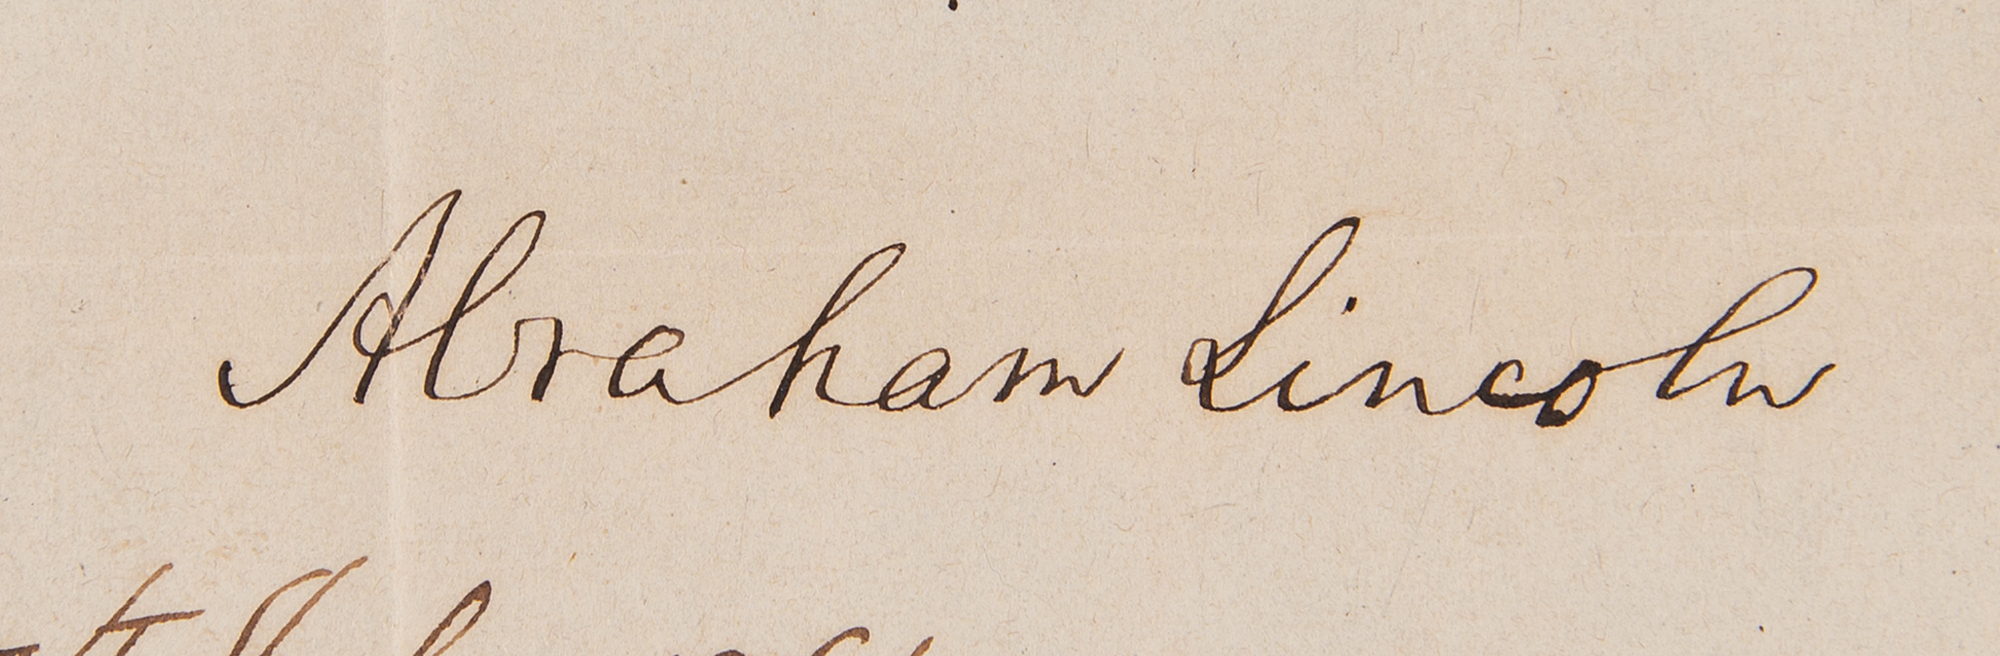 Abraham Lincoln